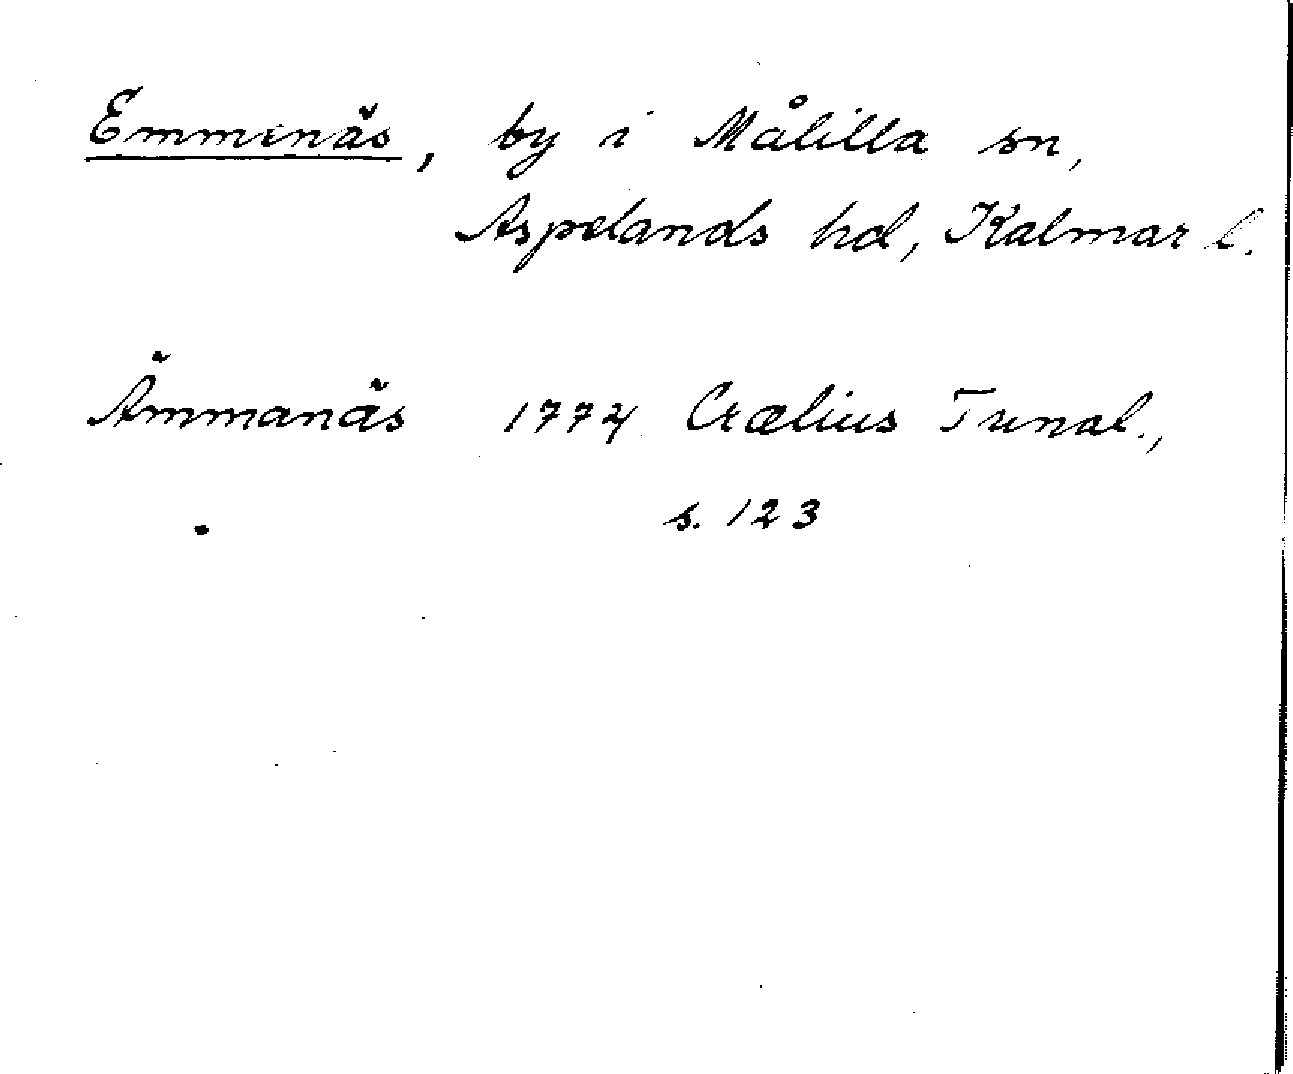 Emmenäs, by i Målilla sn,
Aspelands hd, Kalmar l.
Ämmanäs 1774 Crælius Tunal.,
s. 123